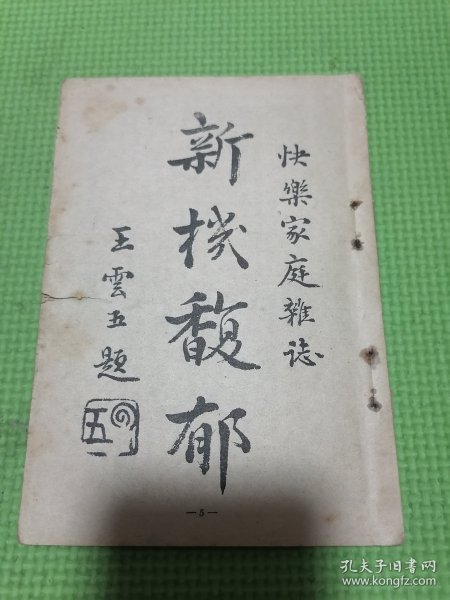 快樂家庭雜誌
新機馥郁
王雲五題
雲五
—5—
孔夫子旧书网
www.kongfz.com